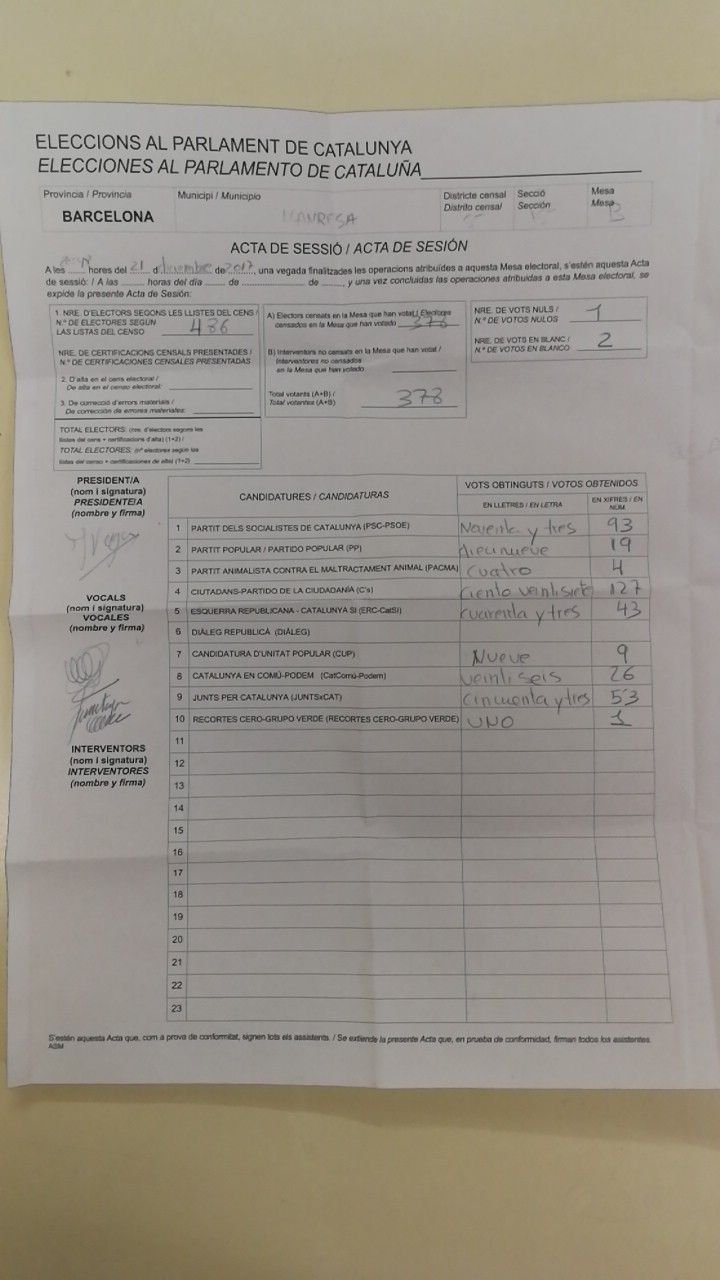 ELECCIONS AL PARLAMENT DE CATALUNYA
ELECCIONES AL PARLAMENTO DE CATALUÑA
Provincia / Provincia
BARCELONA
Municipi / Municipio
MANRESA
Districte censal
Distrito censal
Secció
Sección
Mesa
Mesa
B
ACTA DE SESSIÓ / ACTA DE SESIÓN
A les hores del 21 d' de 2017, una vegada finalitzades les operacions atribuïdes a aquesta Mesa electoral, s'estén aquesta Acta
de sessió: / A las ........ horas del día ........ de ........................ de ........, y una vez concluidas las operaciones atribuidas a esta Mesa electoral, se
expide la presente Acta de Sesión:
1. NRE. D'ELECTORS SEGONS LES LLISTES DEL CENS /
N.º DE ELECTORES SEGÚN
LAS LISTAS DEL CENSO 486
NRE. DE CERTIFICACIONS CENSALS PRESENTADES /
N.º DE CERTIFICACIONES CENSALES PRESENTADAS
2. D'alta en el cens electoral /
De alta en el censo electoral:
3. De correcció d'errors materials /
De corrección de errores materiales:
TOTAL ELECTORS: (nre. d'electors segons les
llistes del cens + certificacions d'alta) (1+2) /
TOTAL ELECTORES: (nº electores según las
listas del censo + certificaciones de alta) (1+2)
A) Electors censats en la Mesa que han votat / Electores
censados en la Mesa que han votado 378
B) Interventors no censats en la Mesa que han votat /
Interventores no censados
en la Mesa que han votado
Total votants (A+B) /
Total votantes (A+B) 378
NRE. DE VOTS NULS /
N.º DE VOTOS NULOS 1
NRE. DE VOTS EN BLANC /
N.º DE VOTOS EN BLANCO 2
PRESIDENT/A
(nom i signatura)
PRESIDENTE/A
(nombre y firma)
VOCALS
(nom i signatura)
VOCALES
(nombre y firma)
INTERVENTORS
(nom i signatura)
INTERVENTORES
(nombre y firma)
CANDIDATURES / CANDIDATURAS
VOTS OBTINGUTS / VOTOS OBTENIDOS
EN LLETRES / EN LETRA
EN XIFRES / EN NÚM.
1 PARTIT DELS SOCIALISTES DE CATALUNYA (PSC-PSOE) Noventa y tres 93
2 PARTIT POPULAR / PARTIDO POPULAR (PP) diecinueve 19
3 PARTIT ANIMALISTA CONTRA EL MALTRACTAMENT ANIMAL (PACMA) cuatro 4
4 CIUTADANS-PARTIDO DE LA CIUDADANÍA (C's) ciento veintisiete 127
5 ESQUERRA REPUBLICANA - CATALUNYA SÍ (ERC-CatSí) cuarenta y tres 43
6 DIÀLEG REPUBLICÀ (DIÀLEG)
7 CANDIDATURA D'UNITAT POPULAR (CUP) Nueve 9
8 CATALUNYA EN COMÚ-PODEM (CatComú-Podem) veintiseis 26
9 JUNTS PER CATALUNYA (JUNTSxCAT) cincuenta y tres 53
10 RECORTES CERO-GRUPO VERDE (RECORTES CERO-GRUPO VERDE) UNO 1
11
12
13
14
15
16
17
18
19
20
21
22
23
S'estén aquesta Acta que, com a prova de conformitat, signen tots els assistents. / Se extiende la presente Acta que, en prueba de conformidad, firman todos los asistentes.